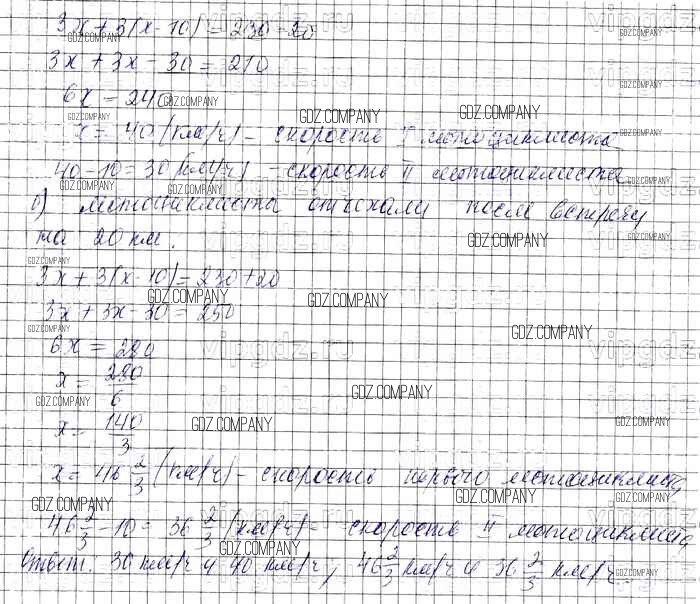 3x + 3(x - 10) = 230 - 20
3x + 3x - 30 = 210
6x = 240
x = 40 (км/ч) - скорость I мотоциклиста
40 - 10 = 30 (км/ч) - скорость II мотоциклиста
б) мотоциклиста отъехали после встречи
на 20 км.
3x + 3(x - 10) = 230 + 20
3x + 3x - 30 = 250
6x = 280
x = 280/6
x = 140/3
x = 46 2/3 (км/ч) - скорость первого мотоциклиста
46 2/3 - 10 = 36 2/3 (км/ч) - скорость II мотоциклиста
Ответ: 30 км/ч и 40 км/ч, 46 2/3 км/ч и 36 2/3 км/ч.
GDZ.COMPANY
vipgdz.ru